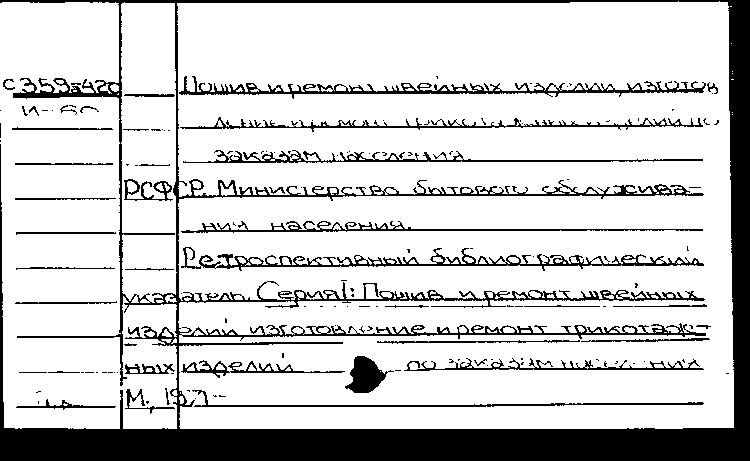 с359-420 Пошив и ремонт швейных изделий, изготов
И-60
ление и ремонт трикотажных изделий по
заказам населения.
РСФСР. Министерство бытового обслужива-
ния населения.
Ретроспективный библиографический
указатель. Серия I: Пошив и ремонт швейных
изделий, изготовление и ремонт трикотаж-
ных изделий по заказам населения
М., 197-